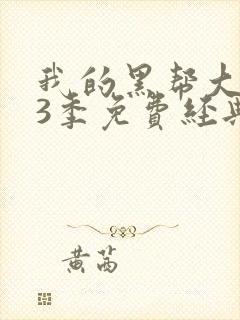 我的黑帮大
3季免費経典
黄茜